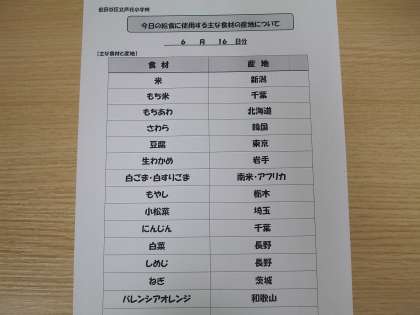 世田谷区立芦花小学校
今日の給食に使用する主な食材の産地について
6 月 16 日分
【主な食材と産地】
食 材 産 地
米 新潟
もち米 千葉
もちあわ 北海道
さわら 韓国
豆腐 東京
生わかめ 岩手
白ごま・白すりごま 南米・アフリカ
もやし 栃木
小松菜 埼玉
にんじん 千葉
白菜 長野
しめじ 長野
ねぎ 茨城
バレンシアオレンジ 和歌山